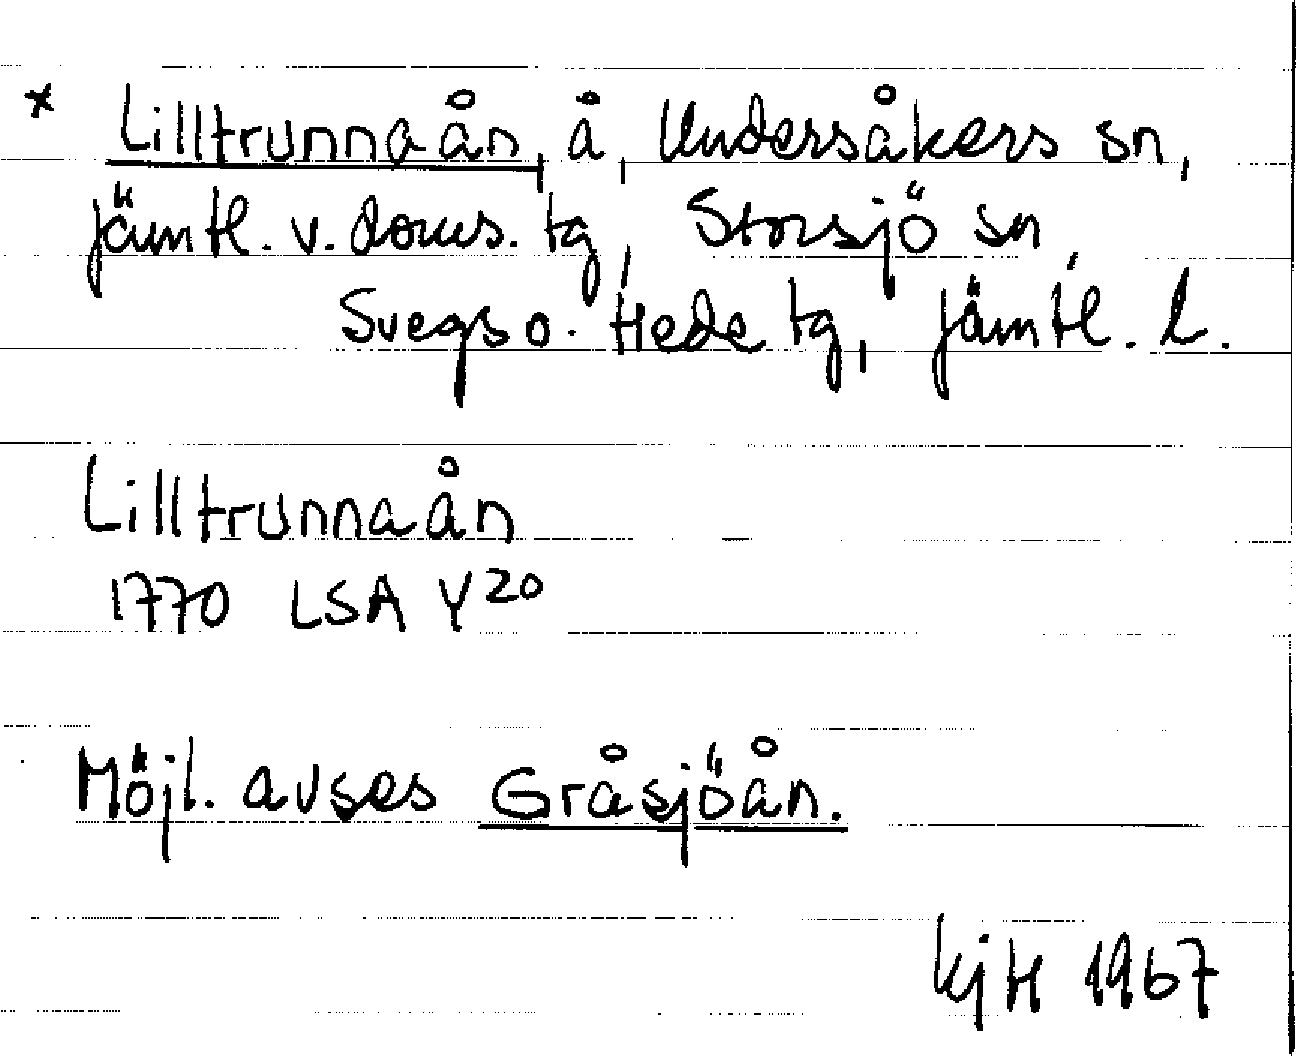 * Lilltrunnaån, å, Undersåkers sn,
Jämtl. v. doms. tg, Storsjö sn,
Svegs o. Hede tg, Jämtl. l.
Lilltrunnaån
1770 LSA Y20
Möjl. avses Gråsjöån.
KjH 1967